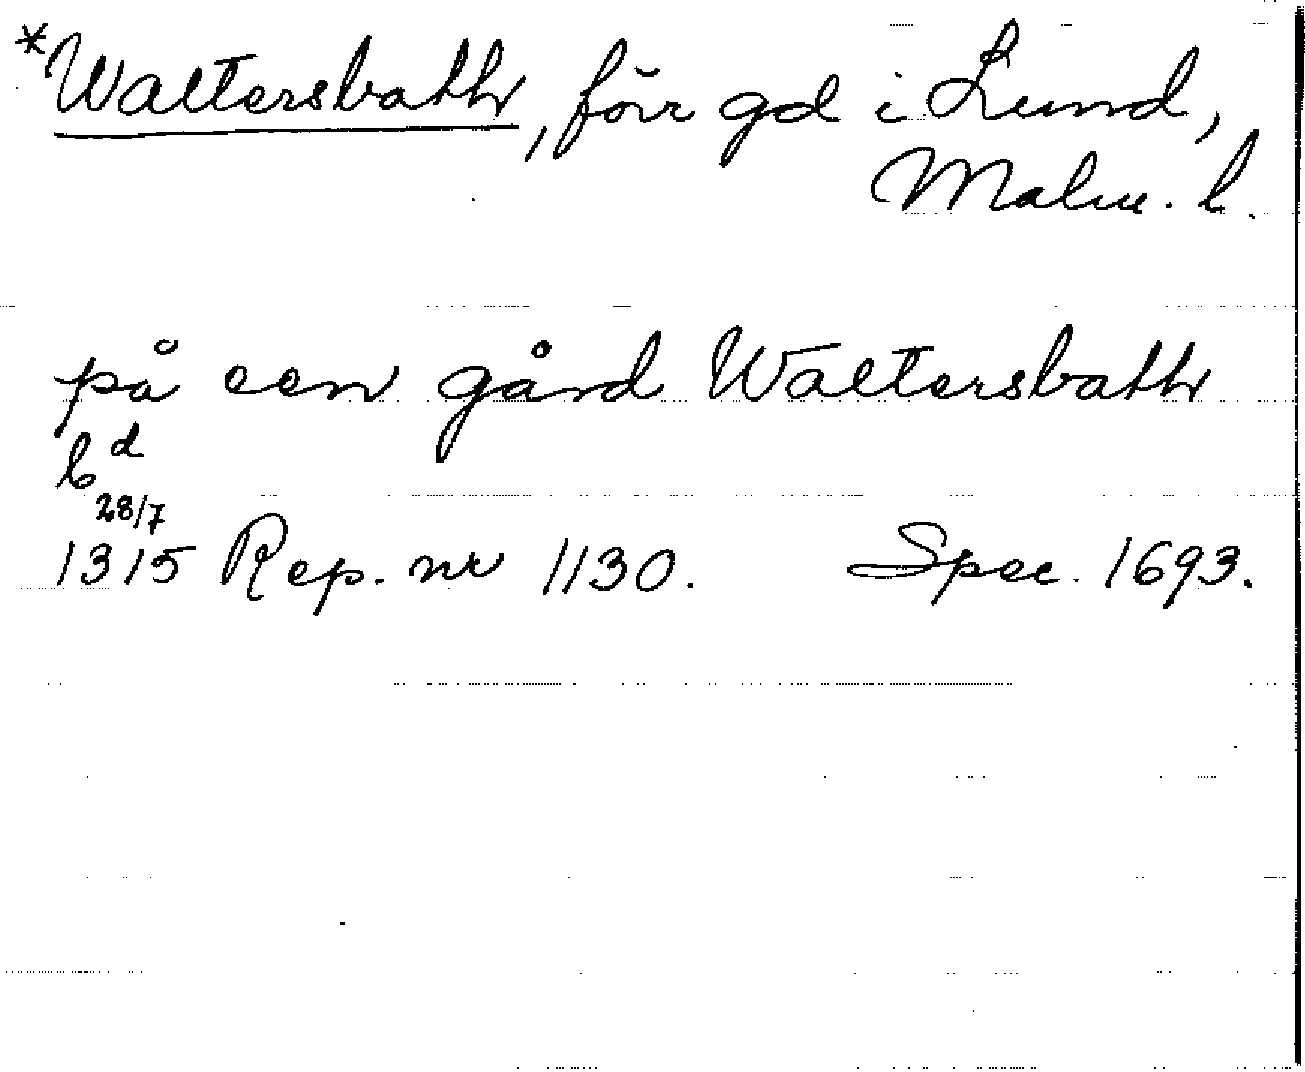 *Waltersbath, förr gd i Lund,
Malm. l.
på een gård Waltersbath
b d
28/7
1315 Rep. nr 1130. Spec. 1693.